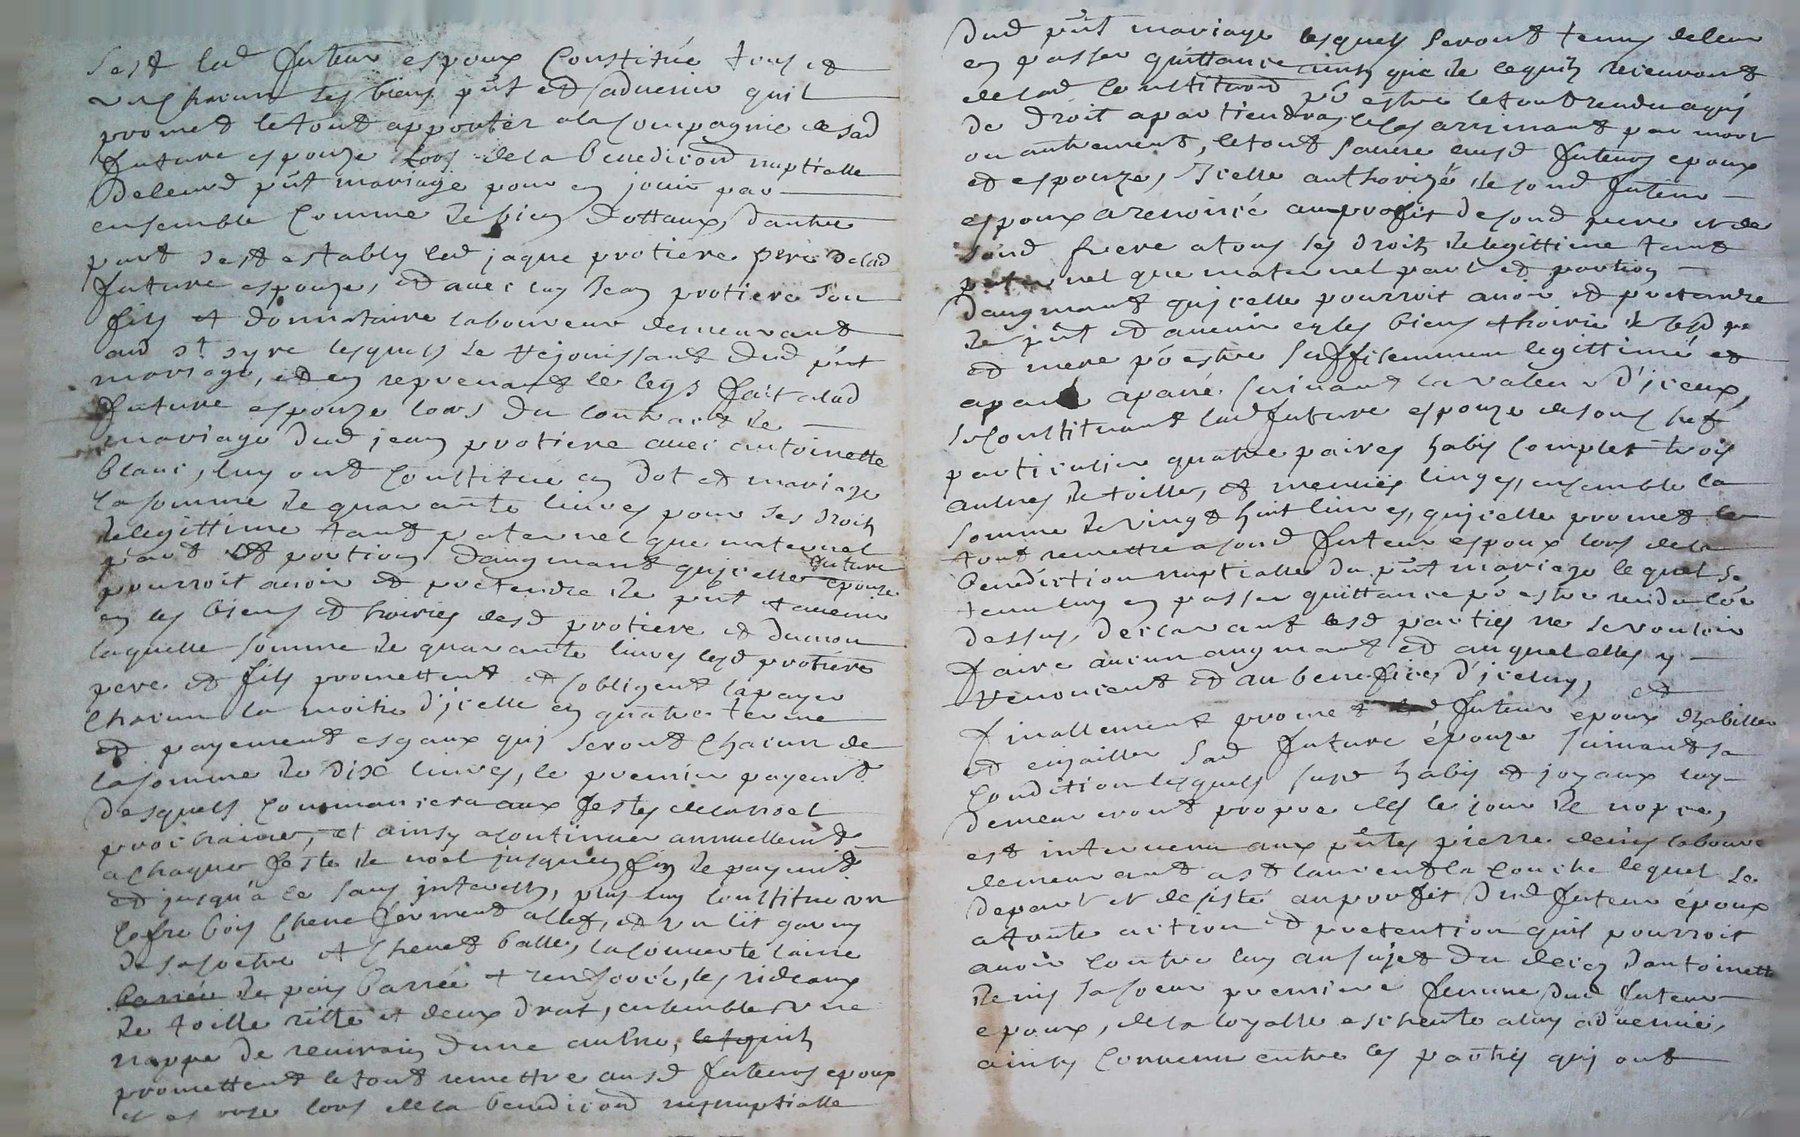 sest led futeur espoux Constitué tous et
un chacun ses biens pñt et advenir quil
promet le tout apporter a la Compagnie de sad
future espouze lors de la benediciond nuptialle
de leurd pñt mariage pour en jouir par
ensemble Comme de bien dottaux, dautre
part sest estably led jaque protiere pere de lad
future espouze, et avec luy Jean protiere son
fils et donnataire laboureur demeurant
aud st syre lesquels se rejouissant dud pñt
mariage, et en reprenant le legs fait alad
future espouze lors du contract de
mariage dud jean protiere avec antoinette
blanc, luy ont Constitué en dot et mariage
la somme de quarante livres pour ses droits
de legittime tant paternel que maternel
part et portion daugmant quicelle future epouze
pourroit avoir et pretendre de pñt et avenir
en les biens et hoiries desd protiere et dumon
laquelle somme de quarante livres lesd protiere
pere et fils promettent et sobligent la payer
Chacun la moitié d'icelle en quatre terme
et payement esgaux qui seront Chacun de
la somme de dix livres, le premier payemt
desquels Commancera aux festes de la noel
prochaine, et ainsy a continuer annuellemt
a chaque feste de noel jusques en fin de payemt
et jusqu'a ce sans interests, plus luy Constitue un
Cofre bois Chene fermant a clef, et un lit garny
de sa coetre et Chevet balle, la couverte laine
barrée de pais barrée et renforcée, les rideaux
de toille ritte et deux drat, ensemble une
nappe de reuirain dune aulne, lesquels
promettent le tout remettre ausd futeurs epoux
et espouse lors de la benediciond nuptialle
dud pñt mariage lesquels seront tenus de leur
en passer quittance ainsy que de ce quils recevront
de lad Constitutiond po estre le tout rendu a qui
de droit apartiendra, le cas arrivant par mort
ou autrement, le tout sauve ausd futeurs epoux
et espouze, Icelle authorizé de sond futeur
espoux a renoncé au profit de sond pere et de
sond frere a tous ses droits de legittime tant
paternel que maternel part et portion
daugmant quicelle pourroit avoir et pretandre
de pñt et avenir en les biens et hoirie de lesd pe
et mere po estre suffisemment legittimé et
apané suivant la valeur d'iceux,
se Constituant lad future espouze de sons chef
particulier quatre paires habis Complet trois
autres de toille, et menues linges, ensemble la
somme de vingt huit livres, quicelle promet le
tout remettre a sond futeur espoux lors de la
benediction nuptialle du pñt mariage lequel se
tenu luy en passer quittance po estre rendu Coe
dessus, declarant lesd parties ne se vouloir
faire aucun augmant et auquel elles y
renoncent et au benefice d'iceluy, et
finallement promet led futeur epoux dhabiller
et enjailler sad future epouze suivant sa
Condition lesquels susd habis et joyaux luy
demeureront propre des le jour de nopce,
est intervenu aux pñtes pierre denis laboure
demeurant a st laurent la Conche lequel se
depart et desiste au profit dud futeur époux
a toute action et pretention quil pourroit
avoir Contre luy au sujet du decez dantoinette
denis sa soeur premiere femme dud futeur
epoux, de la loyalle escheute a luy advenue,
ainsy Convenu entre les parties qui ont